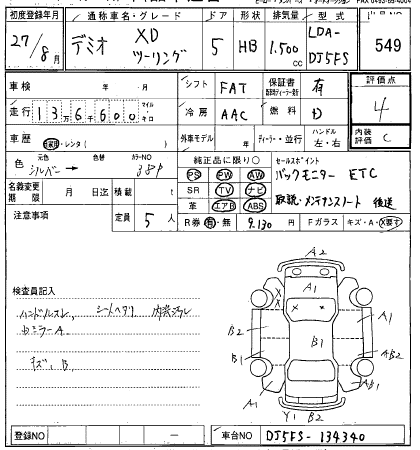 初度登録年月 通称車名・グレード ドア 形状 排気量 型式
27/8月 デミオ XD ツーリング 5 HB 1,500cc LDA-DJ5FS 549
車検 年・月 シフト FAT 保証書 有 評価点
走行 136600 マイル キロ 冷房 AAC 燃料 D 4
車歴 自家用・レンタ( ) 外車モデル 年 ディーラー・並行 ハンドル 左・右 内装評価 C
色 元色 シルバー→ 色替 カラーNO 38P
純正品に限り○ セールスポイント
名義変更期限 月 日迄 積載 t
PS PW AW バックモニター ETC
SR TV ナビ
革 エアB ABS 取説・メンテナンスノート 後送
注意事項 定員 5人 R券 有・無 9,130円 Fガラス キズ・A・X要す
検査員記入
ハンドルスレ、シートヘタリ 内装汚れ
ウラーA
キズ、B
A2
A1
X
X X
A1
B2
B1
B1
AB2
A1
AB1
Y1 B2
登録NO — 車台NO DJ5FS-134340